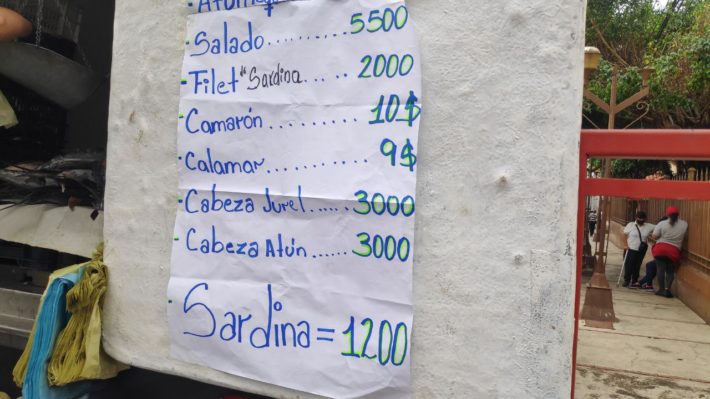 - Salado.......... 5500
- Filet "Sardina..... 2000
- Camarón.......... 10$
- Calamar.......... 9$
- Cabeza Jurel...... 3000
- Cabeza Atún...... 3000
- Sardina = 1200